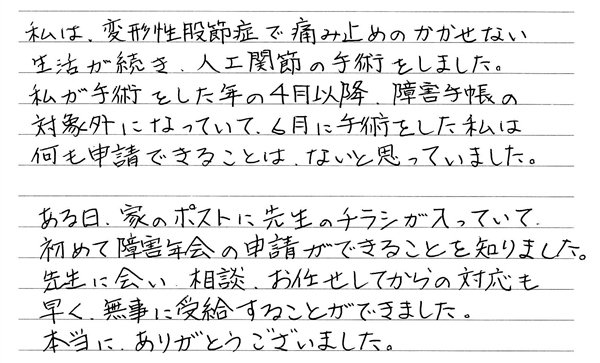 私は、変形性股節症で痛み止めのかかせない
生活が続き、人工関節の手術をしました。
私が手術をした年の4月以降、障害手帳の
対象外になっていて、6月に手術をした私は
何も申請できることは、ないと思っていました。
ある日、家のポストに先生のチラシが入っていて、
初めて障害年会の申請ができることを知りました。
先生に会い、相談、お任せしてからの対応も
早く、無事に受給することができました。
本当に、ありがとうございました。